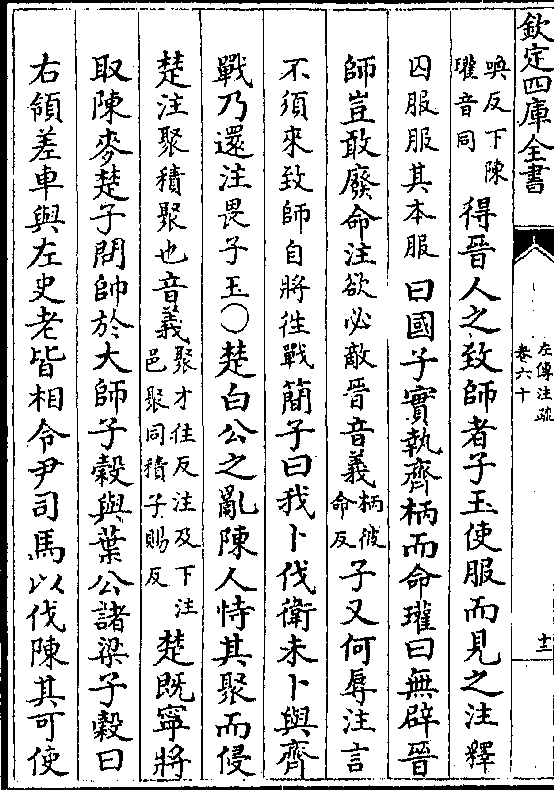 欽定四庫全書
左傳注疏
卷六十
十二
喚反下陳
瓘音同
得晉人之致師者子玉使服而見之注釋
囚服服其本服曰國子實執齊柄而命瓘曰無辟晉
師豈敢廢命注欲必敵晉音義
柄彼
命反
子又何辱注言
不須來致師自將往戰簡子曰我卜伐衛未卜與齊
戰乃還注畏子玉○楚白公之亂陳人恃其聚而侵
楚注聚積聚也音義
聚才住反注及下注
邑聚同積子賜反
楚既寧將
取陳麥楚子問帥於大師子穀與葉公諸梁子穀曰
右領差車與左史老皆相令尹司馬以伐陳其可使